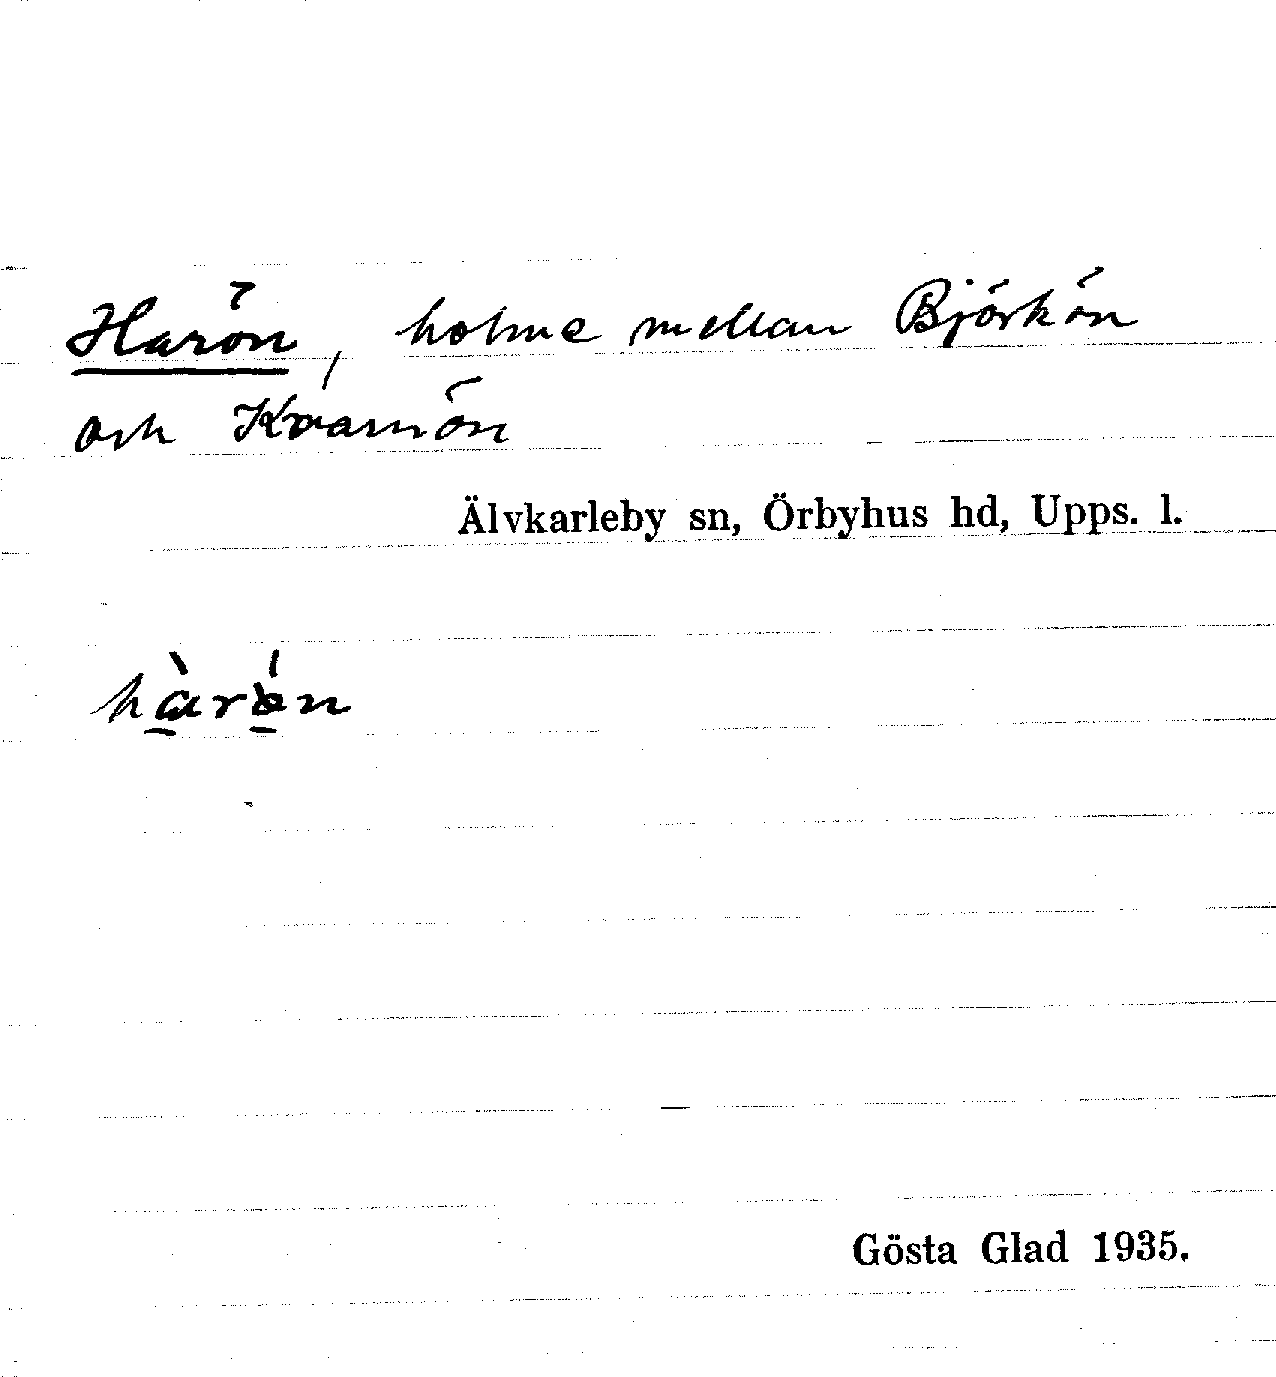 Harön, holme mellan Björkön
och Kvarnön
Älvkarleby sn, Örbyhus hd, Upps. l.
hàrǿn
Gösta Glad 1935.